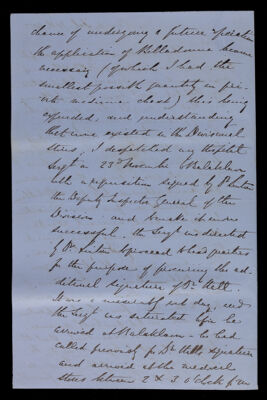 chance of undergoing a future operation
the application of Belladonna became
necessary (of which I had the
smallest possible quantity in pri-
vate medicine chest) this being
expended, and understanding
that none existed in the Divisional
Stores, I despatched my Hospital
Sergt on 23rd November to Balaklava
with a requisition signed by Dr
the Deputy Inspector General of the
Division: and to make it more
successful, the Sergt was directed
of Dr to proceed to head quarters
for the purpose of procuring the ad-
ditional signature of Dr Hall.
It was a miserably wet day, and
the Sergt was saturated before he
arrived at Balaklava. he had
called previously for Dr Hall's signature
and arrived at the medical
stores between 2 & 3 o'clock P.M.